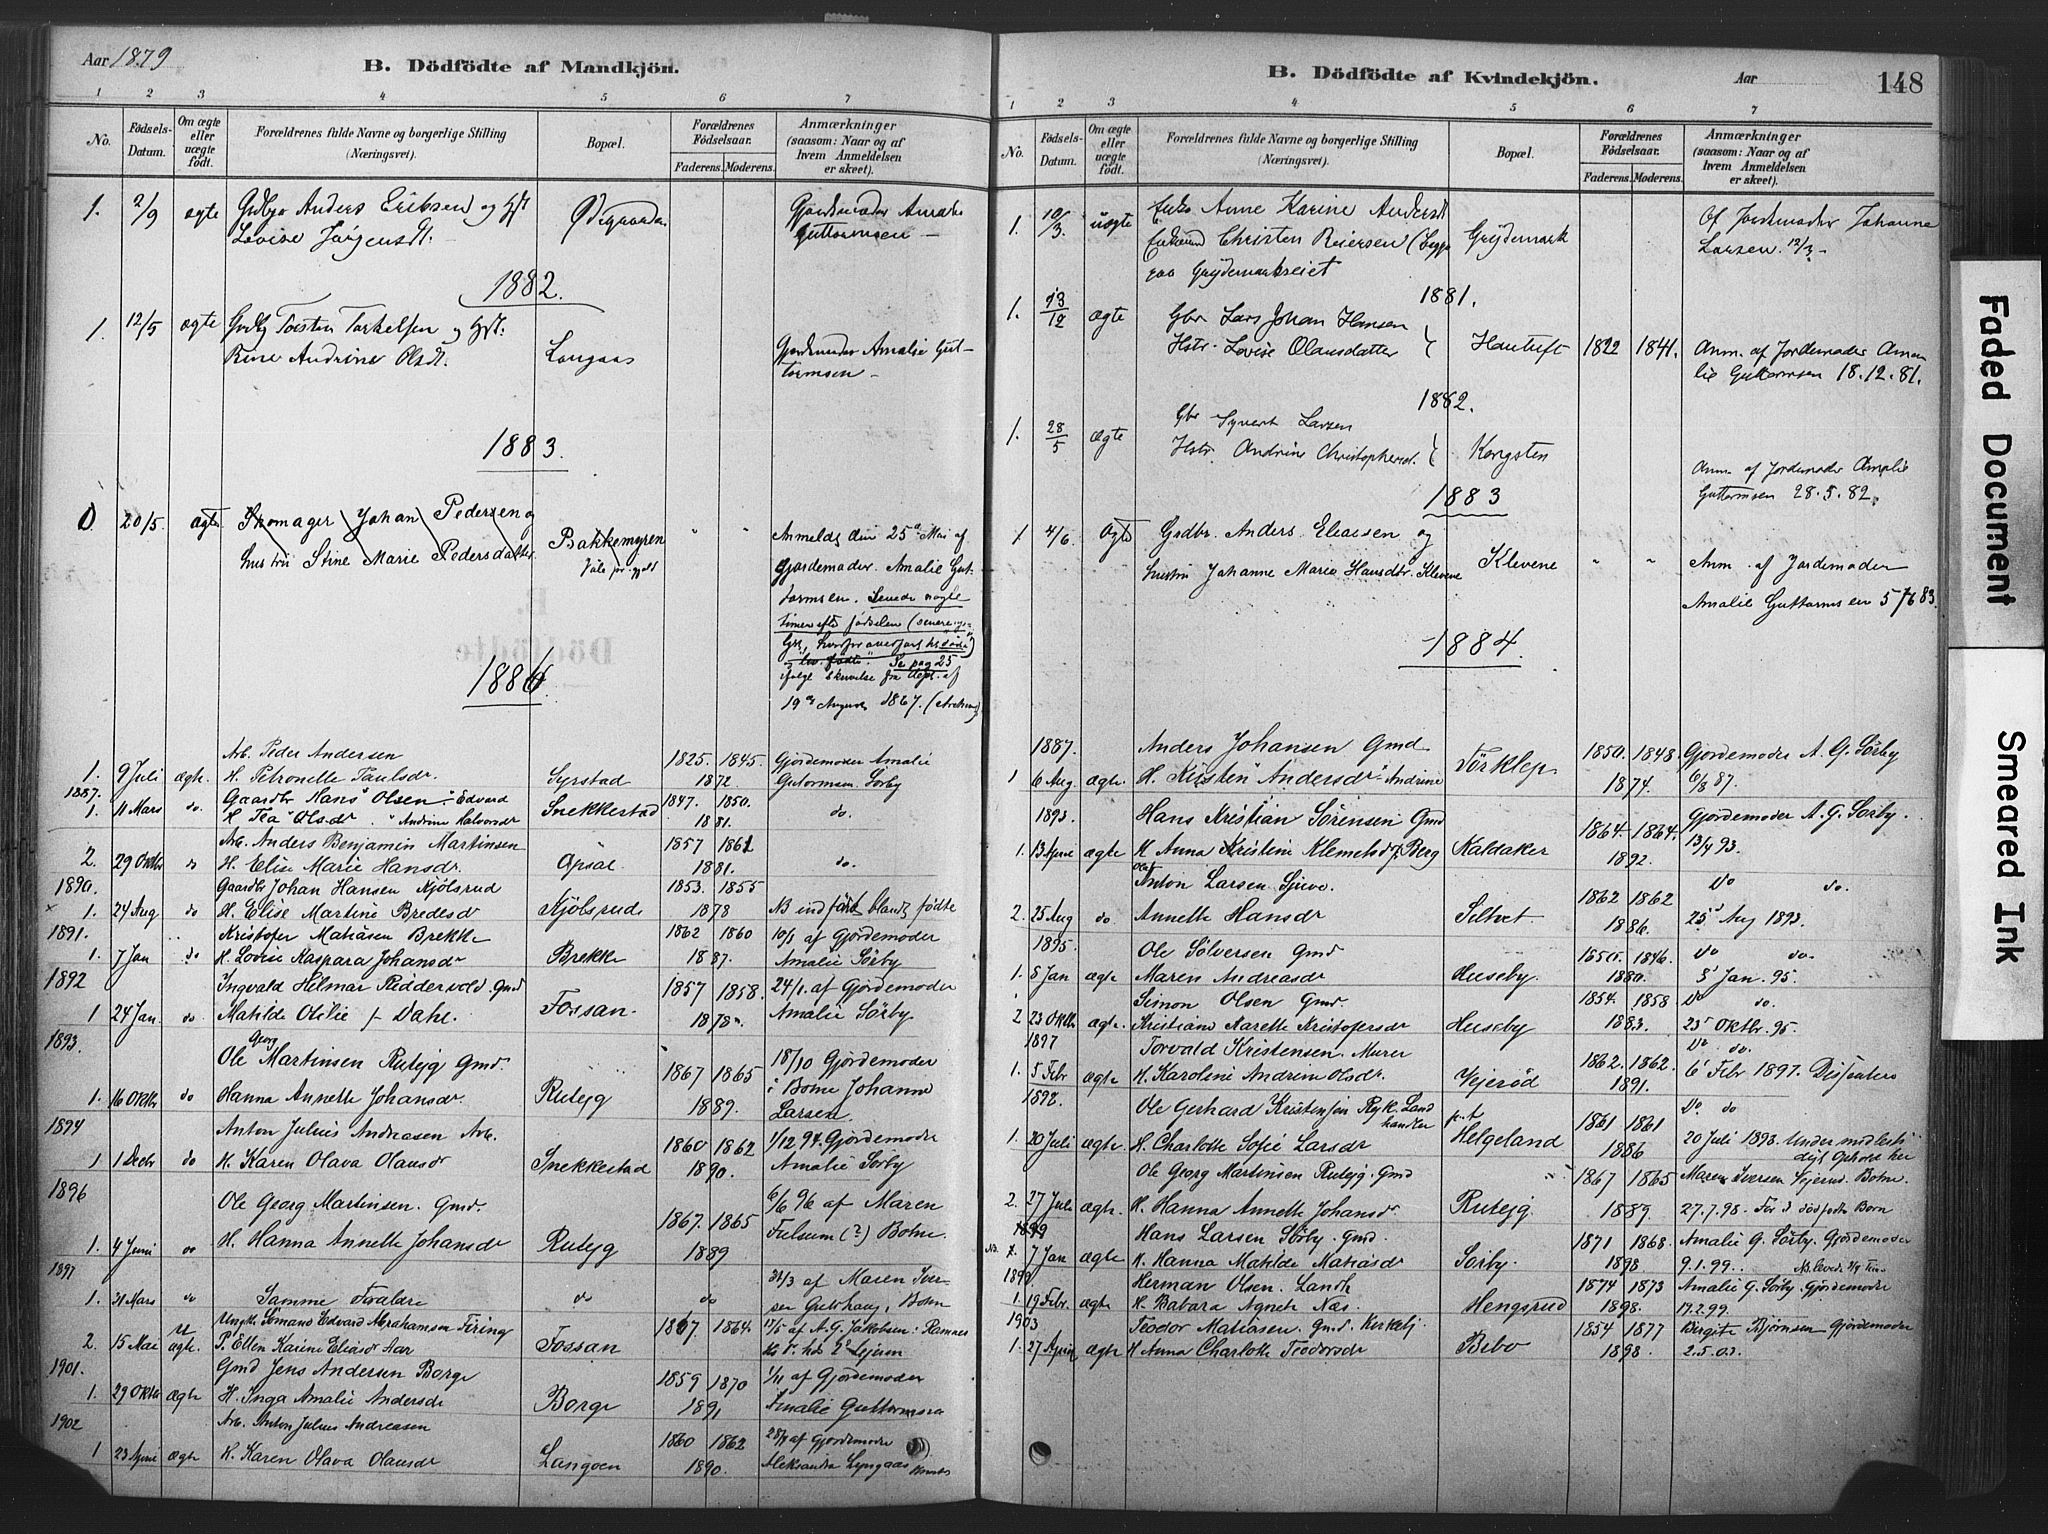 Aar 1879
B. Dödfödte af Mandkjön.
1 2 3 4 5 6 7
No.
Födsels-Datum.
Om ægte eller uægte födt.
Forældrenes fulde Navne og borgerlige Stilling (Næringsvei).
Bopæl.
Forældrenes Födselsaar.
Faderens. Moderens.
Anmærkninger (saasom: Naar og af hvem Anmeldelsen er skeet).
1. 2/9 ægte Gdbr Anders Eriksen og Hst Ødegaarden Gjordemoder Amalie
Lovise Jörgensdt. Guttormsen
1882.
1 12/5 ægte Torsten Torkelsen og Hst.
Andrine Olsdt. Langaas Gjordemoder Amalie Gut-
tormsen
1883.
20/5. ægte Skomager Johan Pedersen og Bakkemyren Anmeldt den 25de Mai af
Hustru Stine Marie Pedersdatter Gjordemoder Amalie Gut-
tormsen. Levede nogle
timer efter födselen (senere
Se pag 25
fra Dept. af
19de August 1867.
1886
Arb. Peder Andersen 1825. 1845. Gjordemoder Amalie
1. 9 Juli ægte. H. Petronelle Paulsdr. Syrstad 1872 Guttormsen Sörby
1887. Gaardbr Hans Olsen Edvard 1847. 1850.
1. 11 Mars do H. Tea Olsdr. Andrine Halvorsdr Snekkestad 1881. do.
Arb. Anders Benjamin Martinsen 1857 1861
2. 29 Oktbr do H. Elise Marie Hansdr. Opsal 1881. do.
1890. Gaardbr Johan Hansen Kjölsrud 1853. 1855
1. 24 Aug do H. Elise Martine Bredesd Kjölsrud 1878 NB indfört blandt födte
1891. Kristofer Matiasen Brekke 1862 1860 10/1 af Gjordemoder
1. 7 Jan do H. Lovise Kaspara Johansdr Brekke 1887. Amalie Sörby
1892 Ingvald Helmar Riddervold Gmd 1857 1858. 24/1. af Gjordemoder
1 24 Jan. do Matilde Otilie f. Dahl. Fossan. 1878. Amalie Sörby.
1893. Ole Georg Martinsen Rutejg Gmd. 1867 1865 18/10 Gjordemoder
i Botne Johanne
1. 16 Oktbr do Hanna Annette Johansdr. Rutejg 1889. Larsen.
1894 Anton Julius Andreasen Arb. 1860 1862 1/12 94. Gjordemoder
1 1 Decbr do H. Karen Olava Olausdr Snekkestad 1890. Amalie Sörby
1896 Ole Georg Martinsen. Gmd. 1867. 1865 6/6 96 af Maren
1. 4 Juni do H. Hanna Annette Johansdr Rutejg 1889 Fulsum (?) Botne.
1897 31/3 af Maren Iver-
1. 31 Mars do Samme Forældre do do sen Gulehaug, Botne
2. 15 Mai u ægte. Ungk. Sömand Edvard Abrahamsen Firing 1867. 1864. 17/5 af A. G. Jakobsen: Ramnes
P. Ellen Karine Eliasdr Aar Fossan
1901. Gmd Jens Andersen Borge 1859 1870 1/11 af Gjordemoder
1. 29 Oktbr ægte H. Inga Amalie Andersdr Borge 1891 Amalie Guttormsen
1902 Arb. Anton Julius Andreasen 1860 1862 28/4 af Gjordemoder
1 23 April ægte H. Karen Olava Olausdr Langoen 1890. Aleksandra Lyngaas Botne
B. Dödfödte af Kvindekjön.
Aar
148
1 2 3 4 5 6 7
No.
Födsels-Datum.
Om ægte eller uægte födt.
Forældrenes fulde Navne og borgerlige Stilling (Næringsvei).
Bopæl.
Forældrenes Födselsaar.
Faderens. Moderens.
Anmærkninger (saasom: Naar og af hvem Anmeldelsen er skeet).
1. 10/3. uægte Enke Anne Karine Andersdt Af Jordemoder Johanne
Enkemd Christen Reiersen Grydemark Larsen. 12/3
paa Grydemarkseiet
1881.
1. 13/12 ægte Gbr Lars Johan Hansen
Hstr. Lovise Olausdatter Hautuft 1822 1841. Anm. af Jordemoder Ama-
lie Guttormsen 18.12.81.
1882.
1. 28/5 ægte Gbr Syvert Larsen
Hstr. Andrine Christophersd. Kongsten Anm. af Jordemoder Amalie
Guttormsen 28.5.82.
1883
1 4/6 ægte Gdbr. Anders Eliasen og
Hustru Johanne Marie Hansdtr. Klevene Klevene " " Anm. af Jordemoder
Amalie Guttormsen 5/6 83.
1884.
1887. Anders Johansen Gmd 1850. 1848 Gjordemoder A. G. Sörby
1 6 Aug ægte. H. Kristen Andersdr Andrine Törklep 1874. 6/8 87.
1893. Hans Kristian Sörensen Gmd 1864. 1864. Gjordemoder A. G. Sörby.
1. 13 April ægte H. Anna Kristine Klemetsd f. Berg Kaldaker 1892. 13/4 93.
Ole Anton Larsen Sjuve. 1862 1862 do do.
2. 25 Aug do. Annette Hansdr Seltvet 1886. 25d Aug 1893.
1895. Ole Sölversen Gmd 1850. 1846. do do.
1. 8 Jan ægte Maren Andreasdr Huseby. 1880. 8d Jan. 95.
Simon Olsen Gmd. 1854. 1858 do do.
2 23 Oktbr ægte. Kristiane Narette Kristofersdr Huseby 1883. 23d Oktbr. 95.
1897 Torvald Kristensen. Murer 1862. 1862. do. do.
1. 5 Febr ægte. H. Karoline Andrine Olsdr. Vejeröd 1891. 6d Febr 1897.
1898. Ole Gerhard Kristensen Ryk. Land handler p.t. 1861 1861 do. do
1. 20 Juli ægte. H. Charlotte Sofie Larsdr Helgeland 1886 20 Juli 1898. Under midlerti-
digt Ophold her
Ole Georg Martinsen Rutejg. Gmd 1867 1865 Maren Iversen Vejerud. Botne.
2. 27 Juli ægte. H. Hanna Annette Johansdr Rutejg. 1889. 27.7.98. För 3 dödfödte Born
1899 Hans Larsen Sörby. Gmd. 1871 1868. Amalie G. Sörby. Gjordemoder
NB. 1. 7 Jan ægte. H. Hanna Matilde Matiasdr Sörby. 1898 9.1.99.
1899 Herman Olsen. Landh 1874 1873 Amalie G. Sörby. Gjordemoder
1. 19 Febr. ægte H. Babara Agnete Næs. Hengsrud 1898. 19.2.99.
1903 Teodor Matiasen. Gmd. Kirkebj. 1854 1877 Birgite Bjørnsen Gjordemoder
1. 27 April ægte. H Anna Charlotte Teodorsdr Bibo 1898. 2.5.03.
Faded Document
Smeared Ink